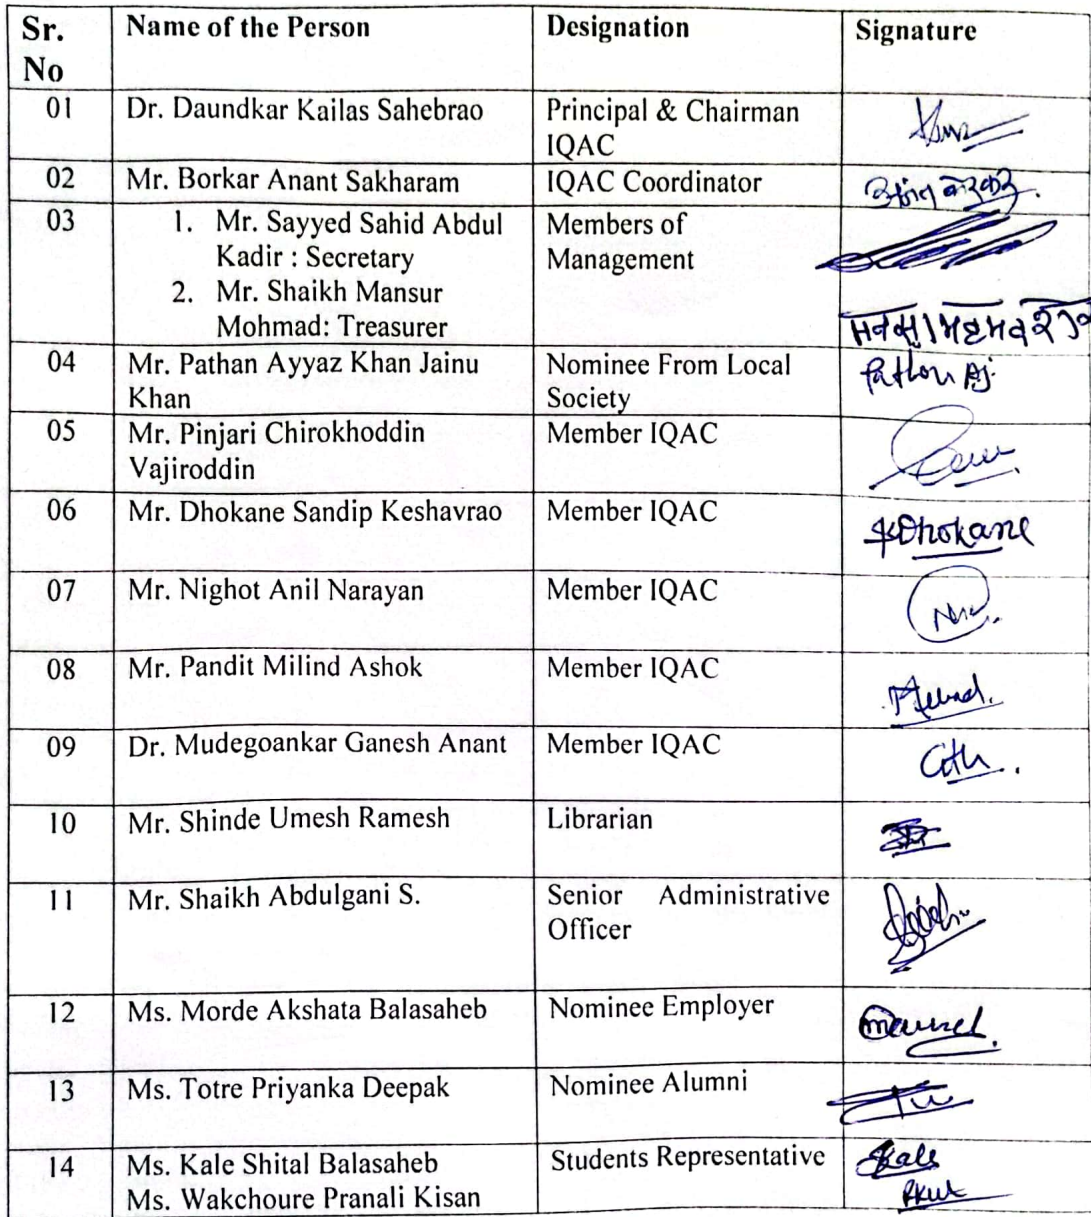 Sr. No
Name of the Person
Designation
Signature
01
Dr. Daundkar Kailas Sahebrao
Principal & Chairman
IQAC
02
Mr. Borkar Anant Sakharam
IQAC Coordinator
03
1. Mr. Sayyed Sahid Abdul
Kadir : Secretary
2. Mr. Shaikh Mansur
Mohmad: Treasurer
Members of
Management
04
Mr. Pathan Ayyaz Khan Jainu
Khan
Nominee From Local
Society
Pathan Aj.
05
Mr. Pinjari Chirokhoddin
Vajiroddin
Member IQAC
06
Mr. Dhokane Sandip Keshavrao
Member IQAC
Dhokane
07
Mr. Nighot Anil Narayan
Member IQAC
08
Mr. Pandit Milind Ashok
Member IQAC
09
Dr. Mudegoankar Ganesh Anant
Member IQAC
10
Mr. Shinde Umesh Ramesh
Librarian
11
Mr. Shaikh Abdulgani S.
Senior Administrative
Officer
12
Ms. Morde Akshata Balasaheb
Nominee Employer
13
Ms. Totre Priyanka Deepak
Nominee Alumni
14
Ms. Kale Shital Balasaheb
Ms. Wakchoure Pranali Kisan
Students Representative
Skale